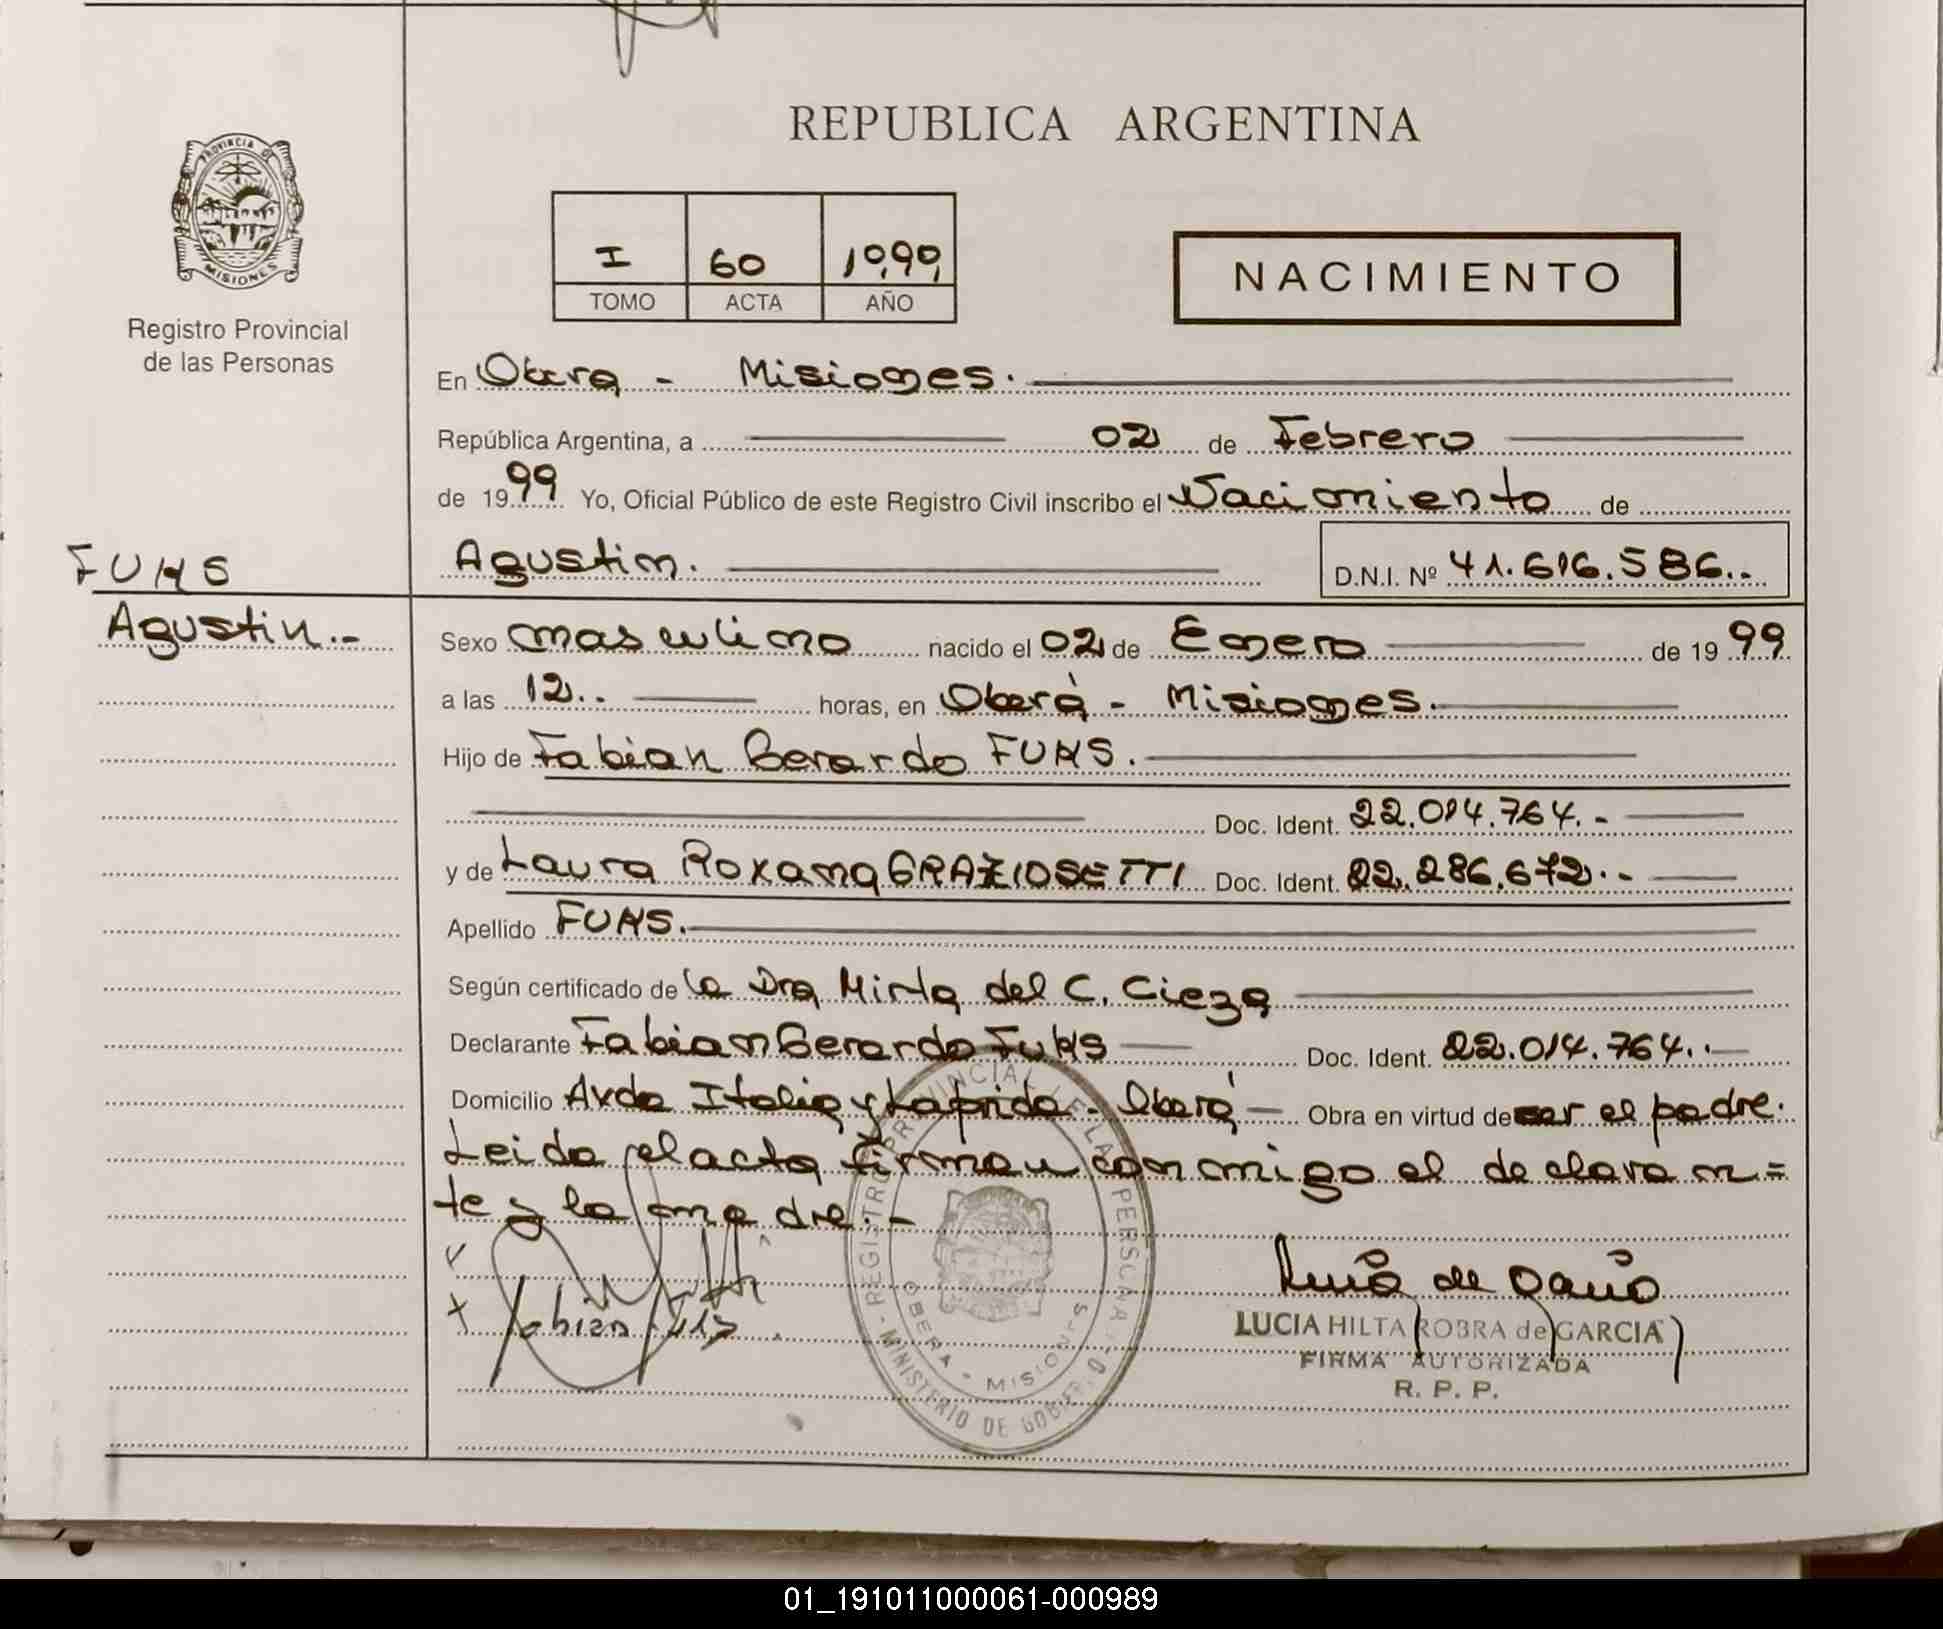 REPUBLICA ARGENTINA
PROVINCIA DE
MISIONES
Registro Provincial
de las Personas
I 60 1999
TOMO ACTA AÑO
NACIMIENTO
En Obera - Misiones.
República Argentina, a 02 de Febrero
de 1999 Yo, Oficial Público de este Registro Civil inscribo el Nacimiento de
FUHS
Agustin.
D.N.I. Nº 41.616.586..
Agustin.-
Sexo masculino nacido el 02 de Enero de 1999
a las 12.. horas, en Oberá - Misiones.
Hijo de Fabian Gerardo FUHS.
Doc. Ident. 22.014.764.-
y de Laura Roxana GRAZIOSETTI Doc. Ident. 22.286.672.-
Apellido FUHS.
Según certificado de la Dra Mirta del C. Cieza
Declarante Fabian Gerardo Fuhs Doc. Ident. 22.014.764..
Domicilio Avda Italia y Laprida - Oberá - Obra en virtud de ser el padre.
Leida el acta firman conmigo el declaran=
te y la madre.-
Fabian Fuhs
LUCIA HILTA ROBRA de GARCIA
FIRMA AUTORIZADA
R. P. P.
REGISTRO PROVINCIAL DE LAS PERSONAS
OBERA - MISIONES
MINISTERIO DE GOBIERNO
01_191011000061-000989